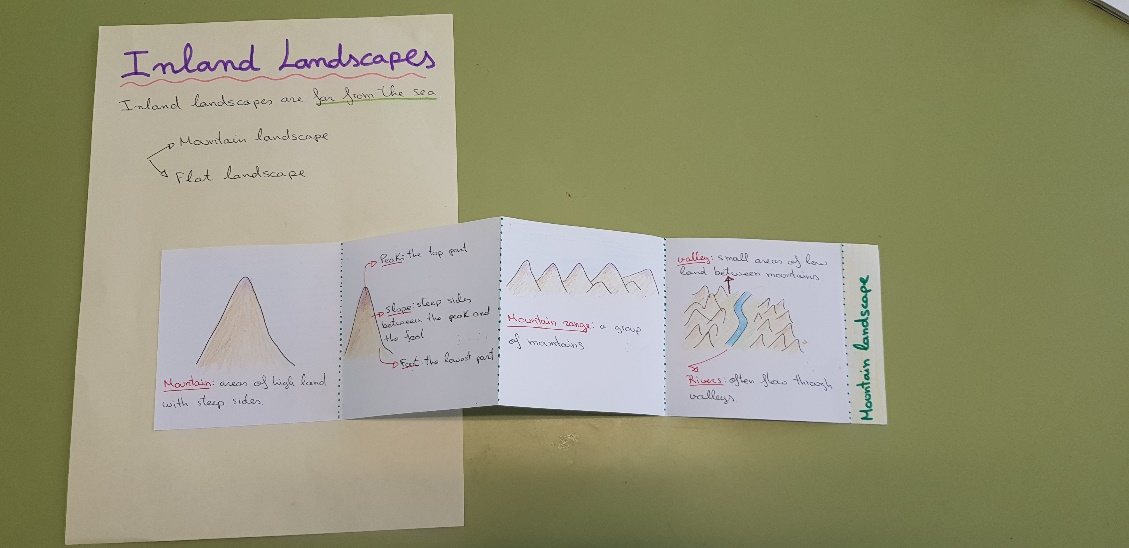 Inland Landscapes
Inland landscapes are far from the sea
Mountain landscape
Flat landscape
Mountain: areas of high land
with steep sides.
Peak: the top part
Slope: steep sides
between the peak and
the foot
Foot: the lowest part
Mountain range: a group
of mountains
valley: small areas of low
land between mountains
Rivers: often flow through
valleys
Mountain landscape